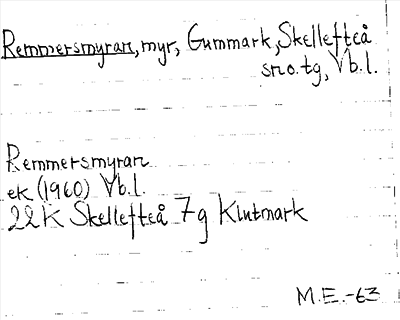 Remmersmyran, myr, Gummark, Skellefteå
sn o. tg, Vb. l.
Remmersmyran
ek (1960) Vb. l.
22K Skellefteå 7g Klutmark
M.E.-63